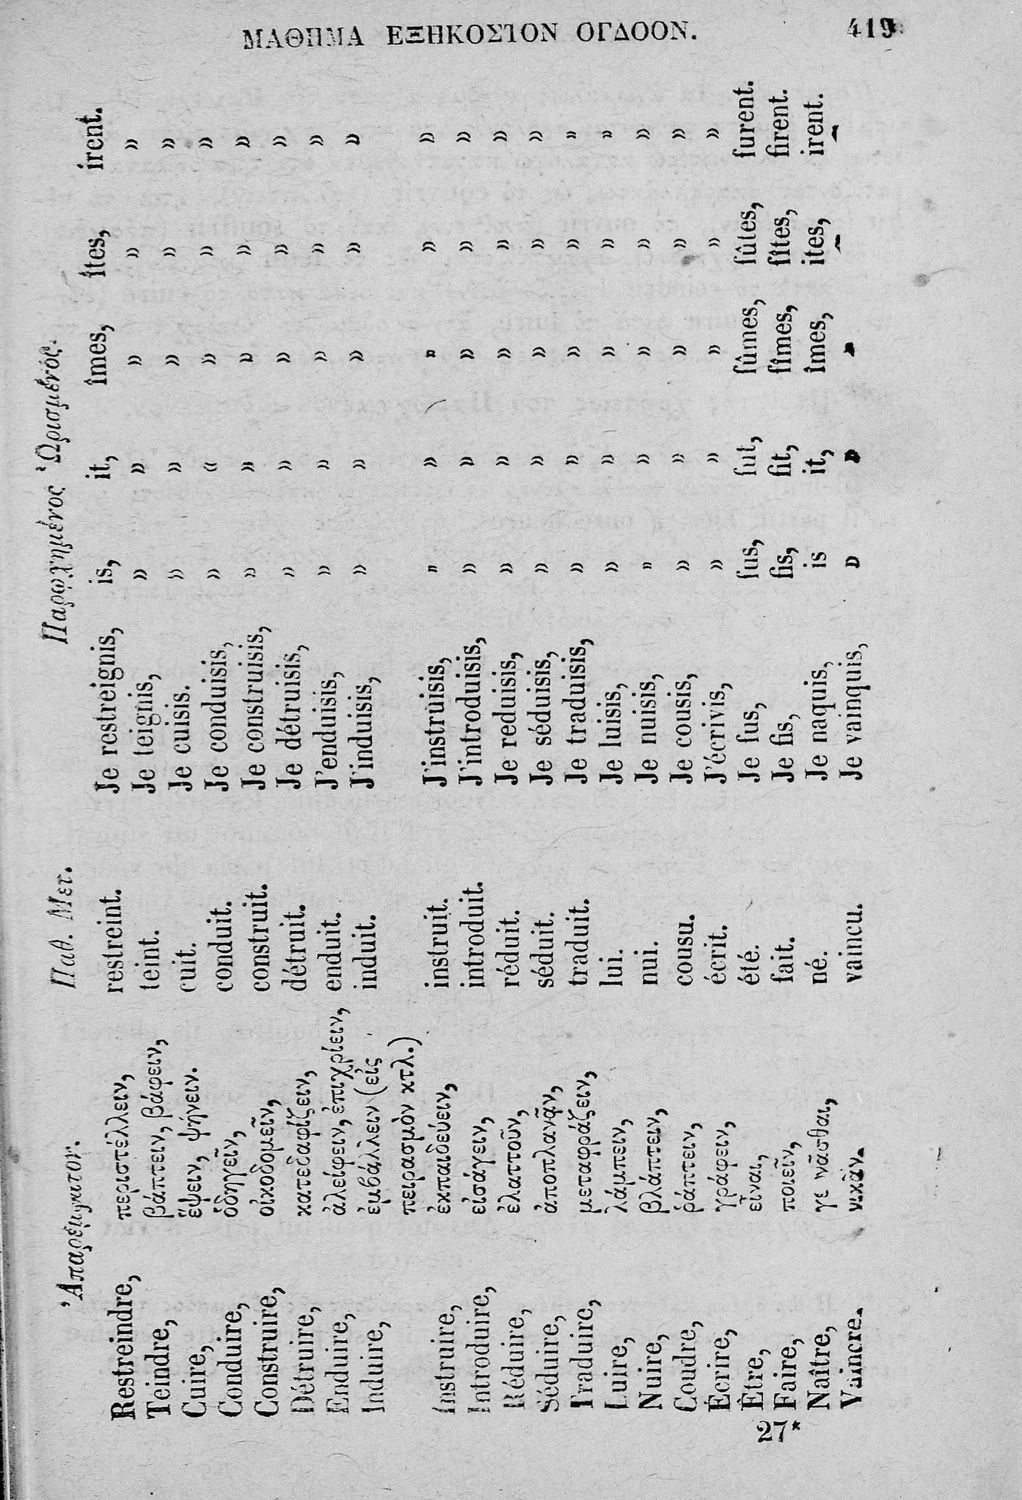 ΜΑΘΗΜΑ ΕΞΗΚΟΣΤΟΝ ΟΓΔΟΟΝ. 419
Ἀπαρέμφατον. Παθ. Μετ. Παρῳχημένος Ὡρισμένος.
Restreindre, περιστέλλειν, restreint. Je restreignis, is, it, îmes, îtes, irent.
Teindre, βάπτειν, βάφειν, teint. Je teignis, » » » » »
Cuire, ἕψειν, ψήνειν. cuit. Je cuisis. » » » » »
Conduire, ὁδηγεῖν, conduit. Je conduisis, » « » » »
Construire, οἰκοδομεῖν, construit. Je construisis, » » » » »
Détruire, κατεδαφίζειν, détruit. Je détruisis, » » » » »
Enduire, ἀλείφειν, ἐπιχρίειν, enduit. J'enduisis, » » » » »
Induire, ἐμβάλλειν (εἰς induit. J'induisis, » » » » »
πειρασμὸν κτλ.)
Instruire, ἐκπαιδεύειν, instruit. J'instruisis, » » » » »
Introduire, εἰσάγειν, introduit. J'introduisis, » » » » »
Réduire, ἐλαττοῦν, réduit. Je reduisis, » » » » »
Séduire, ἀποπλανᾷν, séduit. Je séduisis, » » » » »
Traduire, μεταφράζειν, traduit. Je traduisis, » » » » »
Luire, λάμπειν, lui. Je luisis, » » » » »
Nuire, βλάπτειν, nui. Je nuisis, » » » » »
Coudre, ῥάπτειν, cousu. Je cousis, » » » » »
Écrire, γράφειν, écrit. J'écrivis, » » » » »
Être, εἶναι, été. Je fus, fus, fut, fûmes, fûtes, furent.
Faire, ποιεῖν, fait. Je fis, fis, fit, fîmes, fîtes, firent.
Naître, γεννᾶσθαι, né. Je naquis, is it, îmes, ites, irent.
Vaincre. νικᾶν. vaincu. Je vainquis, » » » » »
27*